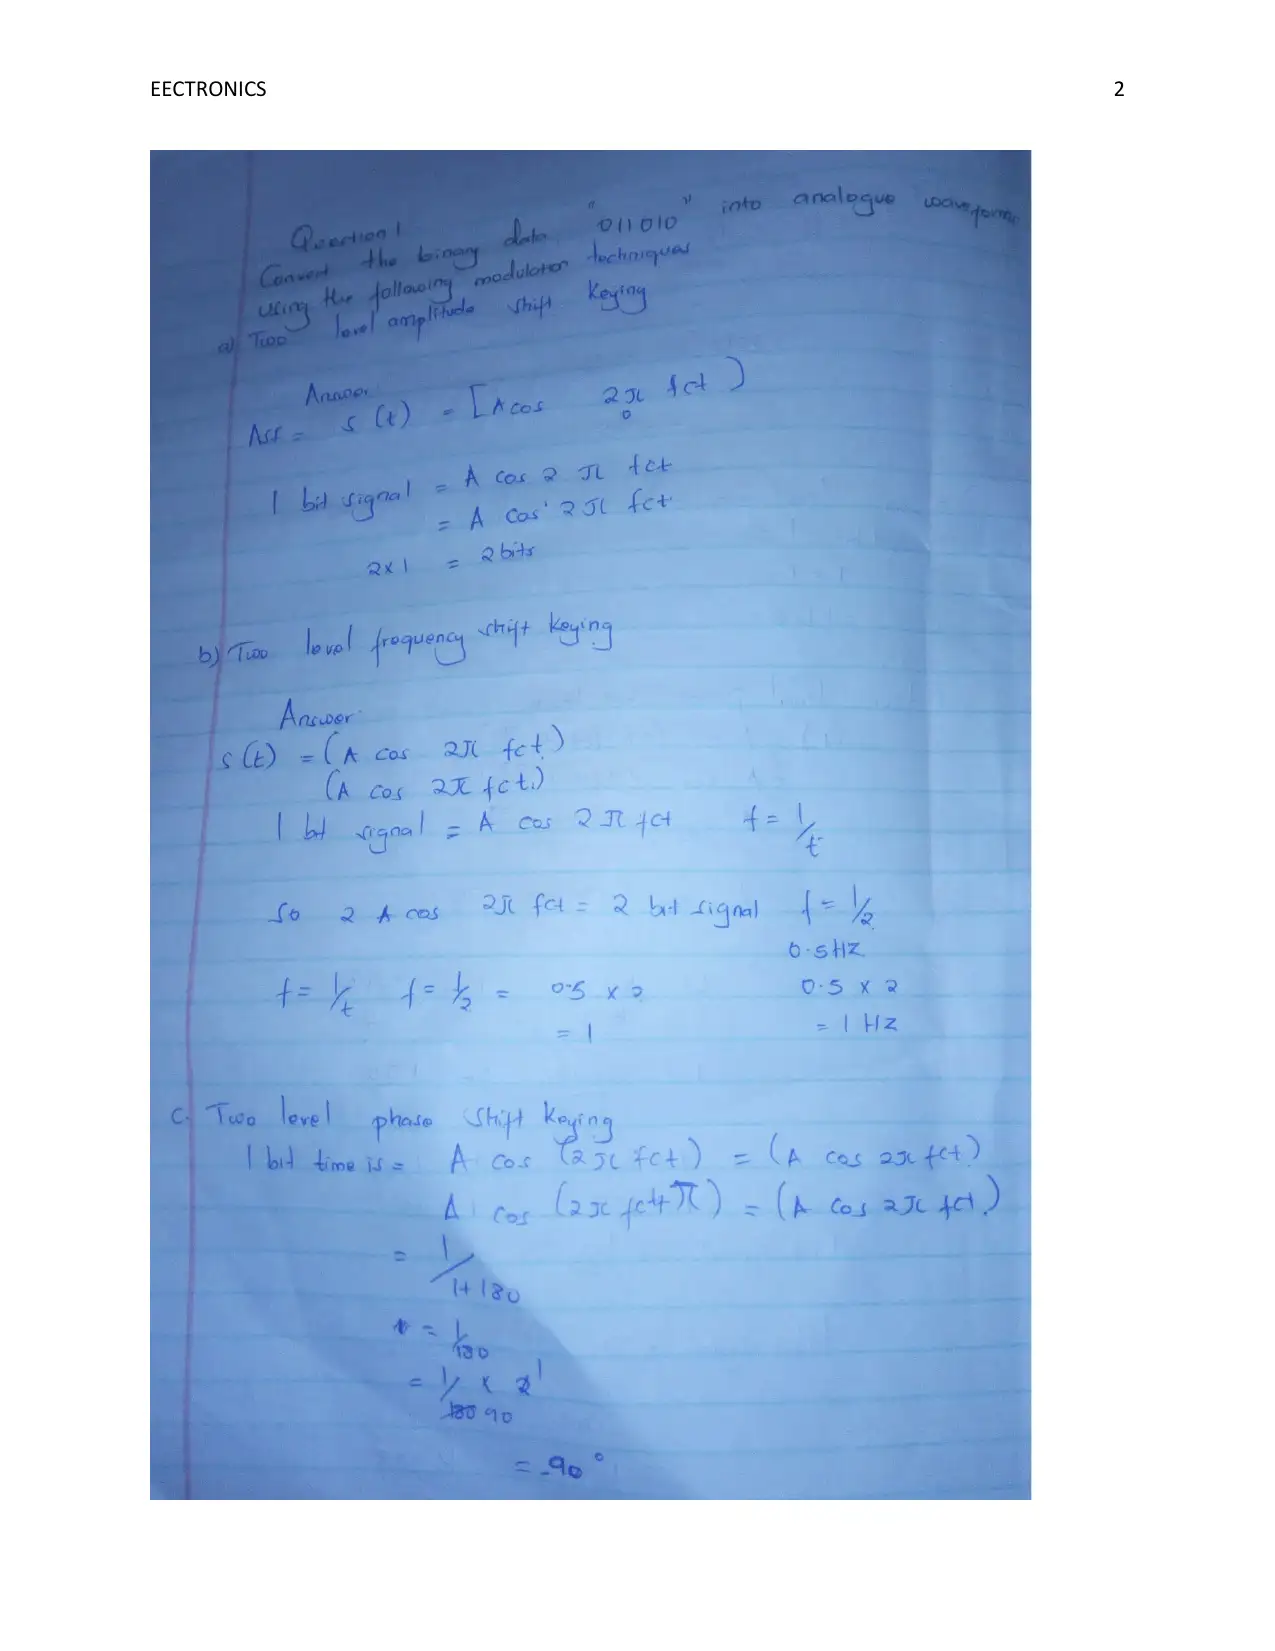 EECTRONICS 2
Question 1
Convert the binary data "011010" into analogue waveforms
using the following modulation techniques
a) Two level amplitude shift keying
Answer
Ass = s (t) = [A cos 2π fct )
0
1 bit signal = A cos 2 π fct
= A cos 2π fct
2x1 = 2 bits
b) Two level frequency shift keying
Answer
s (t) = (A cos 2π fct.)
(A cos 2π fct.)
1 bit signal = A cos 2 π fct f = 1/t
So 2 A cos 2π fct = 2 bit signal f = 1/2
0.5HZ
f = 1/t f = 1/2 = 0.5 x 2 0.5 x 2
= 1 = 1 HZ
c. Two level phase shift keying
1 bit time is = A cos (2π fct) = (A cos 2π fct.)
A cos (2π fct+π) = (A cos 2π fct.)
= 1/1+180
= 1/180
= 1/180 90 x 2 1
= -90°